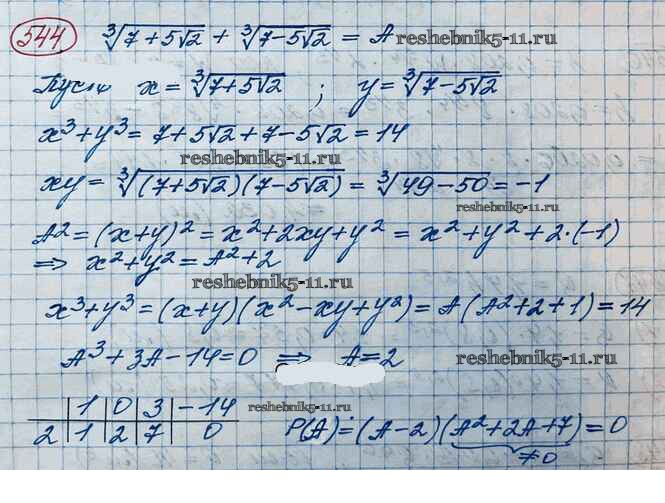 544 ∛(7+5√2) + ∛(7-5√2) = A
reshebnik5-11.ru
Пусть x = ∛(7+5√2) ; y = ∛(7-5√2)
x³+y³ = 7+5√2+7-5√2 = 14
reshebnik5-11.ru
xy = ∛((7+5√2)(7-5√2)) = ∛(49-50) = -1
reshebnik5-11.ru
A² = (x+y)² = x²+2xy+y² = x²+y²+2·(-1)
⇒ x²+y² = A²+2
reshebnik5-11.ru
x³+y³ = (x+y)(x²-xy+y²) = A(A²+2+1) = 14
A³+3A-14=0 ⇒ A=2
reshebnik5-11.ru
| 1 | 0 | 3 | -14
reshebnik5-11.ru
2 | 1 | 2 | 7 | 0 P(A) = (A-2)(A²+2A+7) = 0
≠0